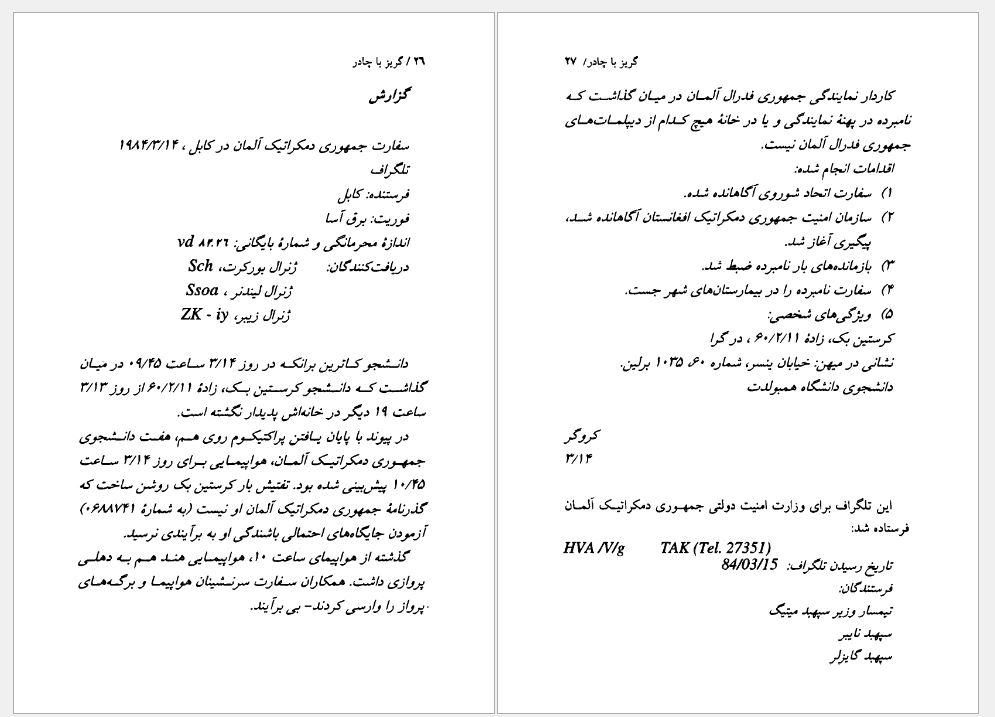 ۲۶ / گریز با چادر
گزارش
سفارت جمهوری دمکراتیک آلمان در کابل ، ۱۹۸۴/۳/۱۴
تلگراف
فرستنده: کابل
فوریت: برق آسا
اندازهٔ محرمانگی و شمارهٔ بایگانی: vd ۸۲.۲۶
دریافت‌کنندگان: ژنرال بورکرت، Sch
ژنرال لیندنر ، Ssoa
ژنرال زیبر، ZK - iy
دانشجو کاترین برانکه در روز ۳/۱۴ ساعت ۰۹/۴۵ در میان
گذاشت که دانشجو کرستین بک، زادهٔ ۶۰/۲/۱۱ از روز ۳/۱۳
ساعت ۱۹ دیگر در خانه‌اش پدیدار نگشته است.
در پیوند با پایان یافتن پراکتیکوم روی هم، هفت دانشجوی
جمهوری دمکراتیک آلمان، هواپیمایی برای روز ۳/۱۴ ساعت
۱۰/۴۵ پیش‌بینی شده بود. تفتیش بار کرستین بک روشن ساخت که
گذرنامهٔ جمهوری دمکراتیک آلمان او نیست (به شمارهٔ ۰۶۸۸۷۴۱)
آزمودن جایگاه‌های احتمالی باشندگی او به برآیندی نرسید.
گذشته از هواپیمای ساعت ۱۰، هواپیمایی هند هم به دهلی
پروازی داشت. همکاران سفارت سرنشینان هواپیما و برگه‌های
پرواز را وارسی کردند- بی برآیند.
گریز با چادر/ ۲۷
کاردار نمایندگی جمهوری فدرال آلمان در میان گذاشت که
نامبرده در پهنهٔ نمایندگی و یا در خانهٔ هیچ کدام از دیپلمات‌های
جمهوری فدرال آلمان نیست.
اقدامات انجام شده:
۱) سفارت اتحاد شوروی آگاهانده شده.
۲) سازمان امنیت جمهوری دمکراتیک افغانستان آگاهانده شد،
پیگیری آغاز شد.
۳) بازمانده‌های بار نامبرده ضبط شد.
۴) سفارت نامبرده را در بیمارستان‌های شهر جست.
۵) ویژگی‌های شخصی:
کرستین بک، زادهٔ ۶۰/۲/۱۱ ، در گرا
نشانی در میهن: خیابان ینسر، شماره ۶۰، ۱۰۳۵ برلین.
دانشجوی دانشگاه همبولدت
کروگر
۳/۱۴
این تلگراف برای وزارت امنیت دولتی جمهوری دمکراتیک آلمان
فرستاده شد:
HVA /V/g TAK (Tel. 27351)
تاریخ رسیدن تلگراف: 84/03/15
فرستندگان:
تیمسار وزیر سپهبد میتیگ
سپهبد نایبر
سپهبد گایزلر